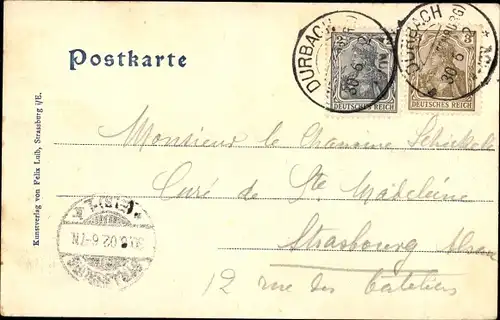 Postkarte
DURBACH
30 6
DURBACH
30 6
DEUTSCHES REICH
3
DEUTSCHES REICH
Kunstverlag von Felix Luib, Strassburg i/E.
Monsieur le Chanoine Schickelé
Curé de Ste Madeleine
Strasbourg Alsace
12 rue des Bateliers
02.6-7N